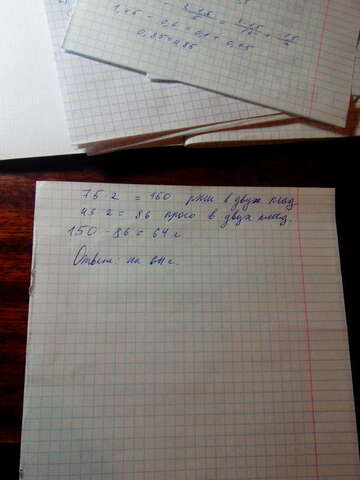 1,45 - 0,6
0,85
75 2 = 150 ржи в двух клад.
43 2 = 86 просо в двух клад.
150 - 86 = 64 г
Ответ: на 64 г.